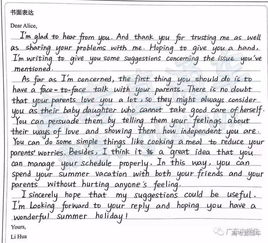 书面表达
Dear Alice,
I'm glad to hear from you. And thank you for trusting me as well
as sharing your problems with me. Hoping to give you a hand.
I'm writing to give you some suggestions concerning the issue you've
mentioned.
As far as I'm concerned, the first thing you should do is to
have a face-to-face talk with your parents. There is no doubt
that your parents love you a lot, so they might always consider
you as their baby daughter who cannot take good care of herself.
You can persuade them by telling them your feelings about
their ways of love and showing them how independent you are.
You can do some simple things like cooking a meal to reduce your
parents' worries. Besides, I think it is a great idea that you
can manage your schedule properly. In this way, you can
spend your summer vacation with both your friends and your
parents without hurting anyone's feeling.
I sincerely hope that my suggestions could be useful.
I'm looking forward to your reply and hoping you have a
wonderful summer holiday!
Yours,
Li Hua